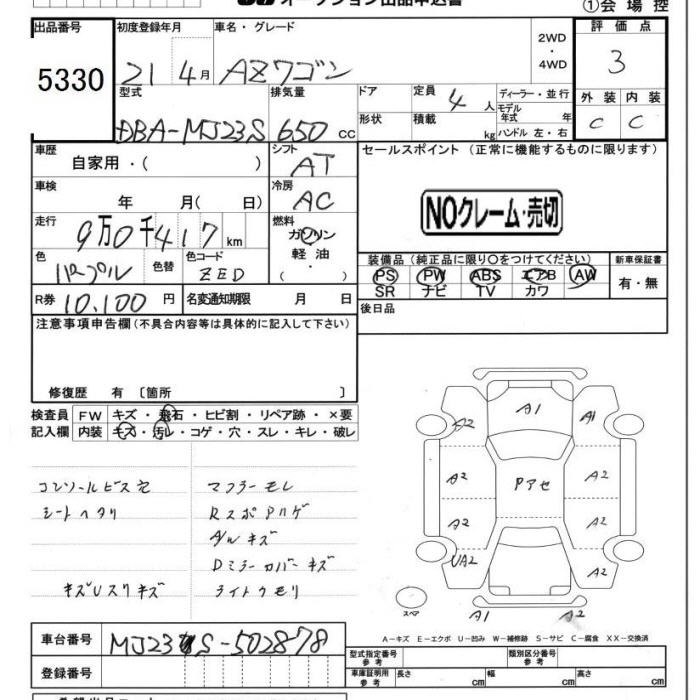 オークション出品申込書
①会場控
出品番号 5330
初度登録年月 21 4月
車名・グレード AZワゴン
2WD ・ 4WD
評価点 3
型式 DBA-MJ23S
排気量 650 cc
ドア 形状
定員 4 人
積載 kg
ディーラー・並行
モデル年式 年
ハンドル 左・右
外装 C
内装 C
車歴 自家用・( )
シフト AT
セールスポイント (正常に機能するものに限ります)
車検 年 月( 日)
冷房 AC
NOクレーム・売切
走行 9万0千417km
燃料 ガソリン 軽油 ・ ( )
色 パープル 色替
色コード ZED
装備品(純正品に限り○をつけてください)
PS PW ABS エアB AW
SR ナビ TV カワ
新車保証書 有・無
R券 10,100 円
名変通知期限 月 日
後日品
注意事項申告欄(不具合内容等は具体的に記入して下さい)
修復歴 有 〔箇所 〕
検査員記入欄
FW キズ・飛石・ヒビ割・リペア跡・×要
内装 キズ・汚レ・コゲ・穴・スレ・キレ・破レ
コンソールビス穴 マフラーモレ
シートヘタリ Rスポアハゲ
ダルキズ
Dミラーカバーキズ
キズUスリキズ ライトクモリ
A1
A2 A1
A2 Pアセ A2
A2 A2
UA2 A2
スペア A1 A2
A-キズ E-エクボ U-凹み W-補修跡 S-サビ C-腐食 XX-交換済
車台番号 MJ23S-502878
型式指定番号 参考
類別区分番号 参考
登録番号
車庫証明用 参考 長さ cm 幅 cm 高さ cm